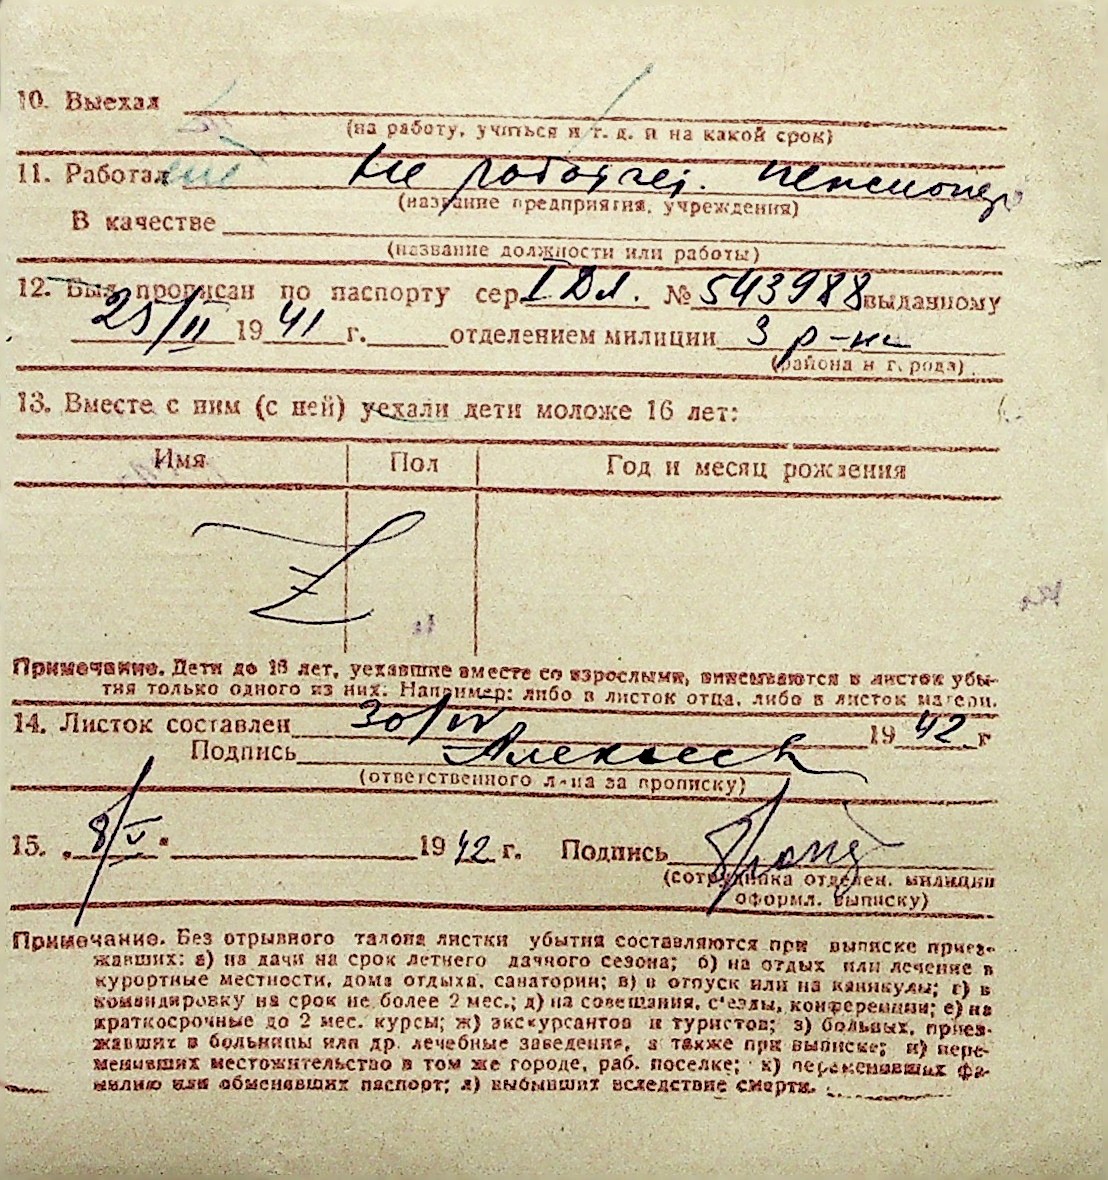 10. Выехал
(на работу, учиться и т. д. и на какой срок)
11. Работал не работает. пенсионер
(название предприятия, учреждения)
В качестве
(название должности или работы)
12. Был прописан по паспорту сер. I Дл. № 543988 выданному
25/II 1941 г. отделением милиции 3 р-на
(района и города)
13. Вместе с ним (с ней) уехали дети моложе 16 лет:
Имя Пол Год и месяц рождения
Z
Примечание. Дети до 16 лет, уехавшие вместе со взрослыми, вписываются в листок убы-
тия только одного из них. Например: либо в листок отца, либо в листок матери.
14. Листок составлен 30/IV 1942 г
Подпись
(ответственного лица за прописку)
15. „8/V" 1942 г. Подпись
(сотрудника отделен. милиции
оформл. выписку)
Примечание. Без отрывного талона листки убытия составляются при выписке приез-
жавших: а) на дачи на срок летнего дачного сезона; б) на отдых или лечение в
курортные местности, дома отдыха, санатории; в) в отпуск или на каникулы; г) в
командировку на срок не более 2 мес.; д) на совещания, с'езды, конференции; е) на
краткосрочные до 2 мес. курсы; ж) экскурсантов и туристов; з) больных, приез-
жавших в больницы или др. лечебные заведения, а также при выписке; и) пере-
менивших местожительство в том же городе, раб. поселке; к) переменивших фа-
милию или обменявших паспорт; л) выбывших вследствие смерти.